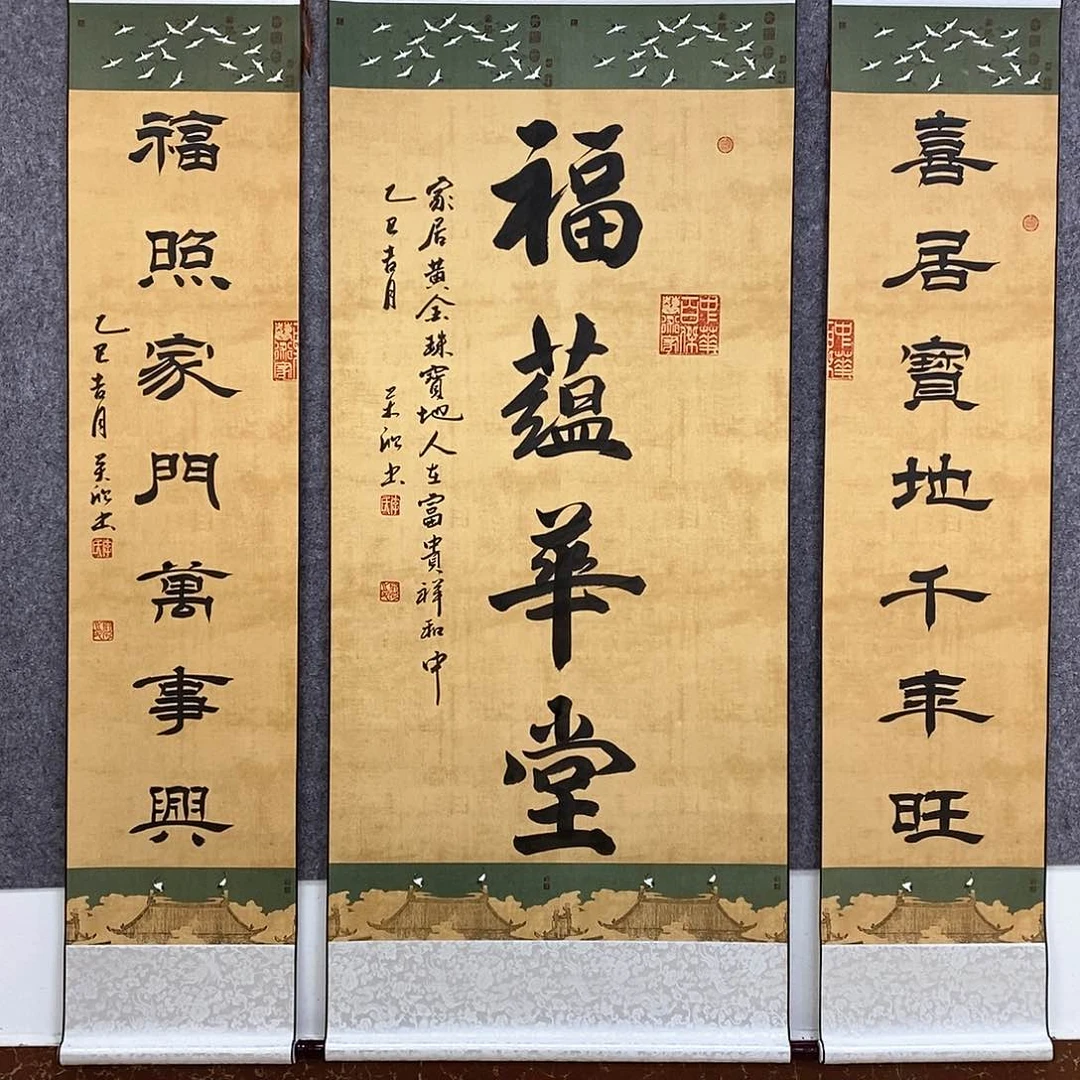 喜居寶地千年旺
中華
福蘊華堂
中華百傑
家居黃金珠寶地人在富貴祥和中
乙巳吉月
福照家門萬事興
乙巳吉月